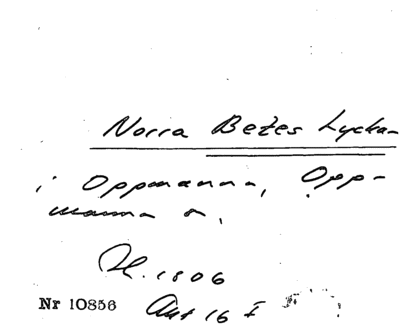 Norra Betes Lyckan
i Oppmanna, Opp-
manna s.
H. 1806
Nr 10856 Akt 16 I